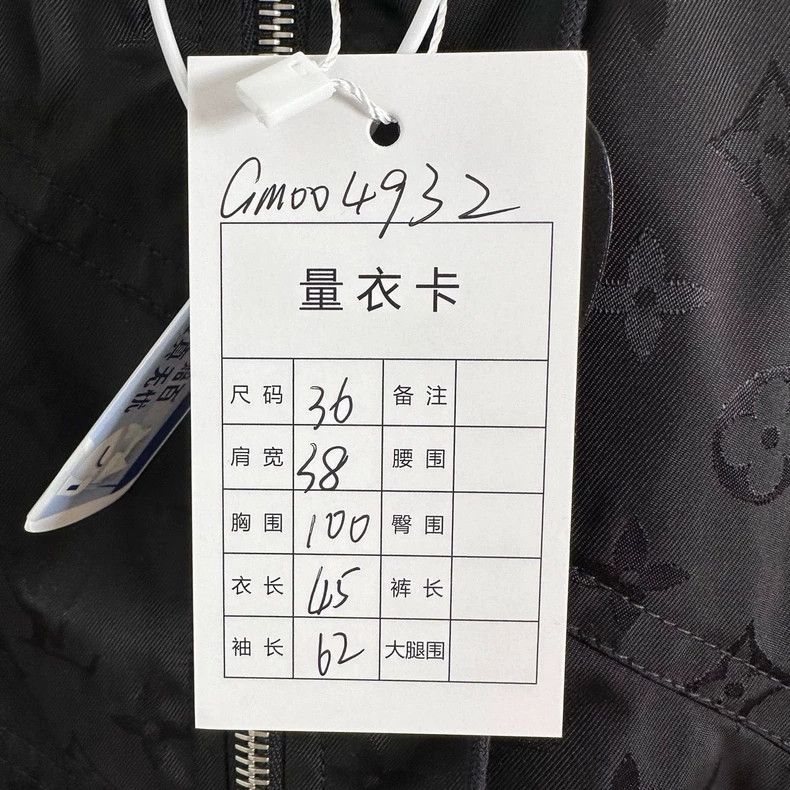 GM004932
量衣卡
尺码 36 备注
肩宽 38 腰围
胸围 100 臀围
衣长 45 裤长
袖长 62 大腿围
无忧